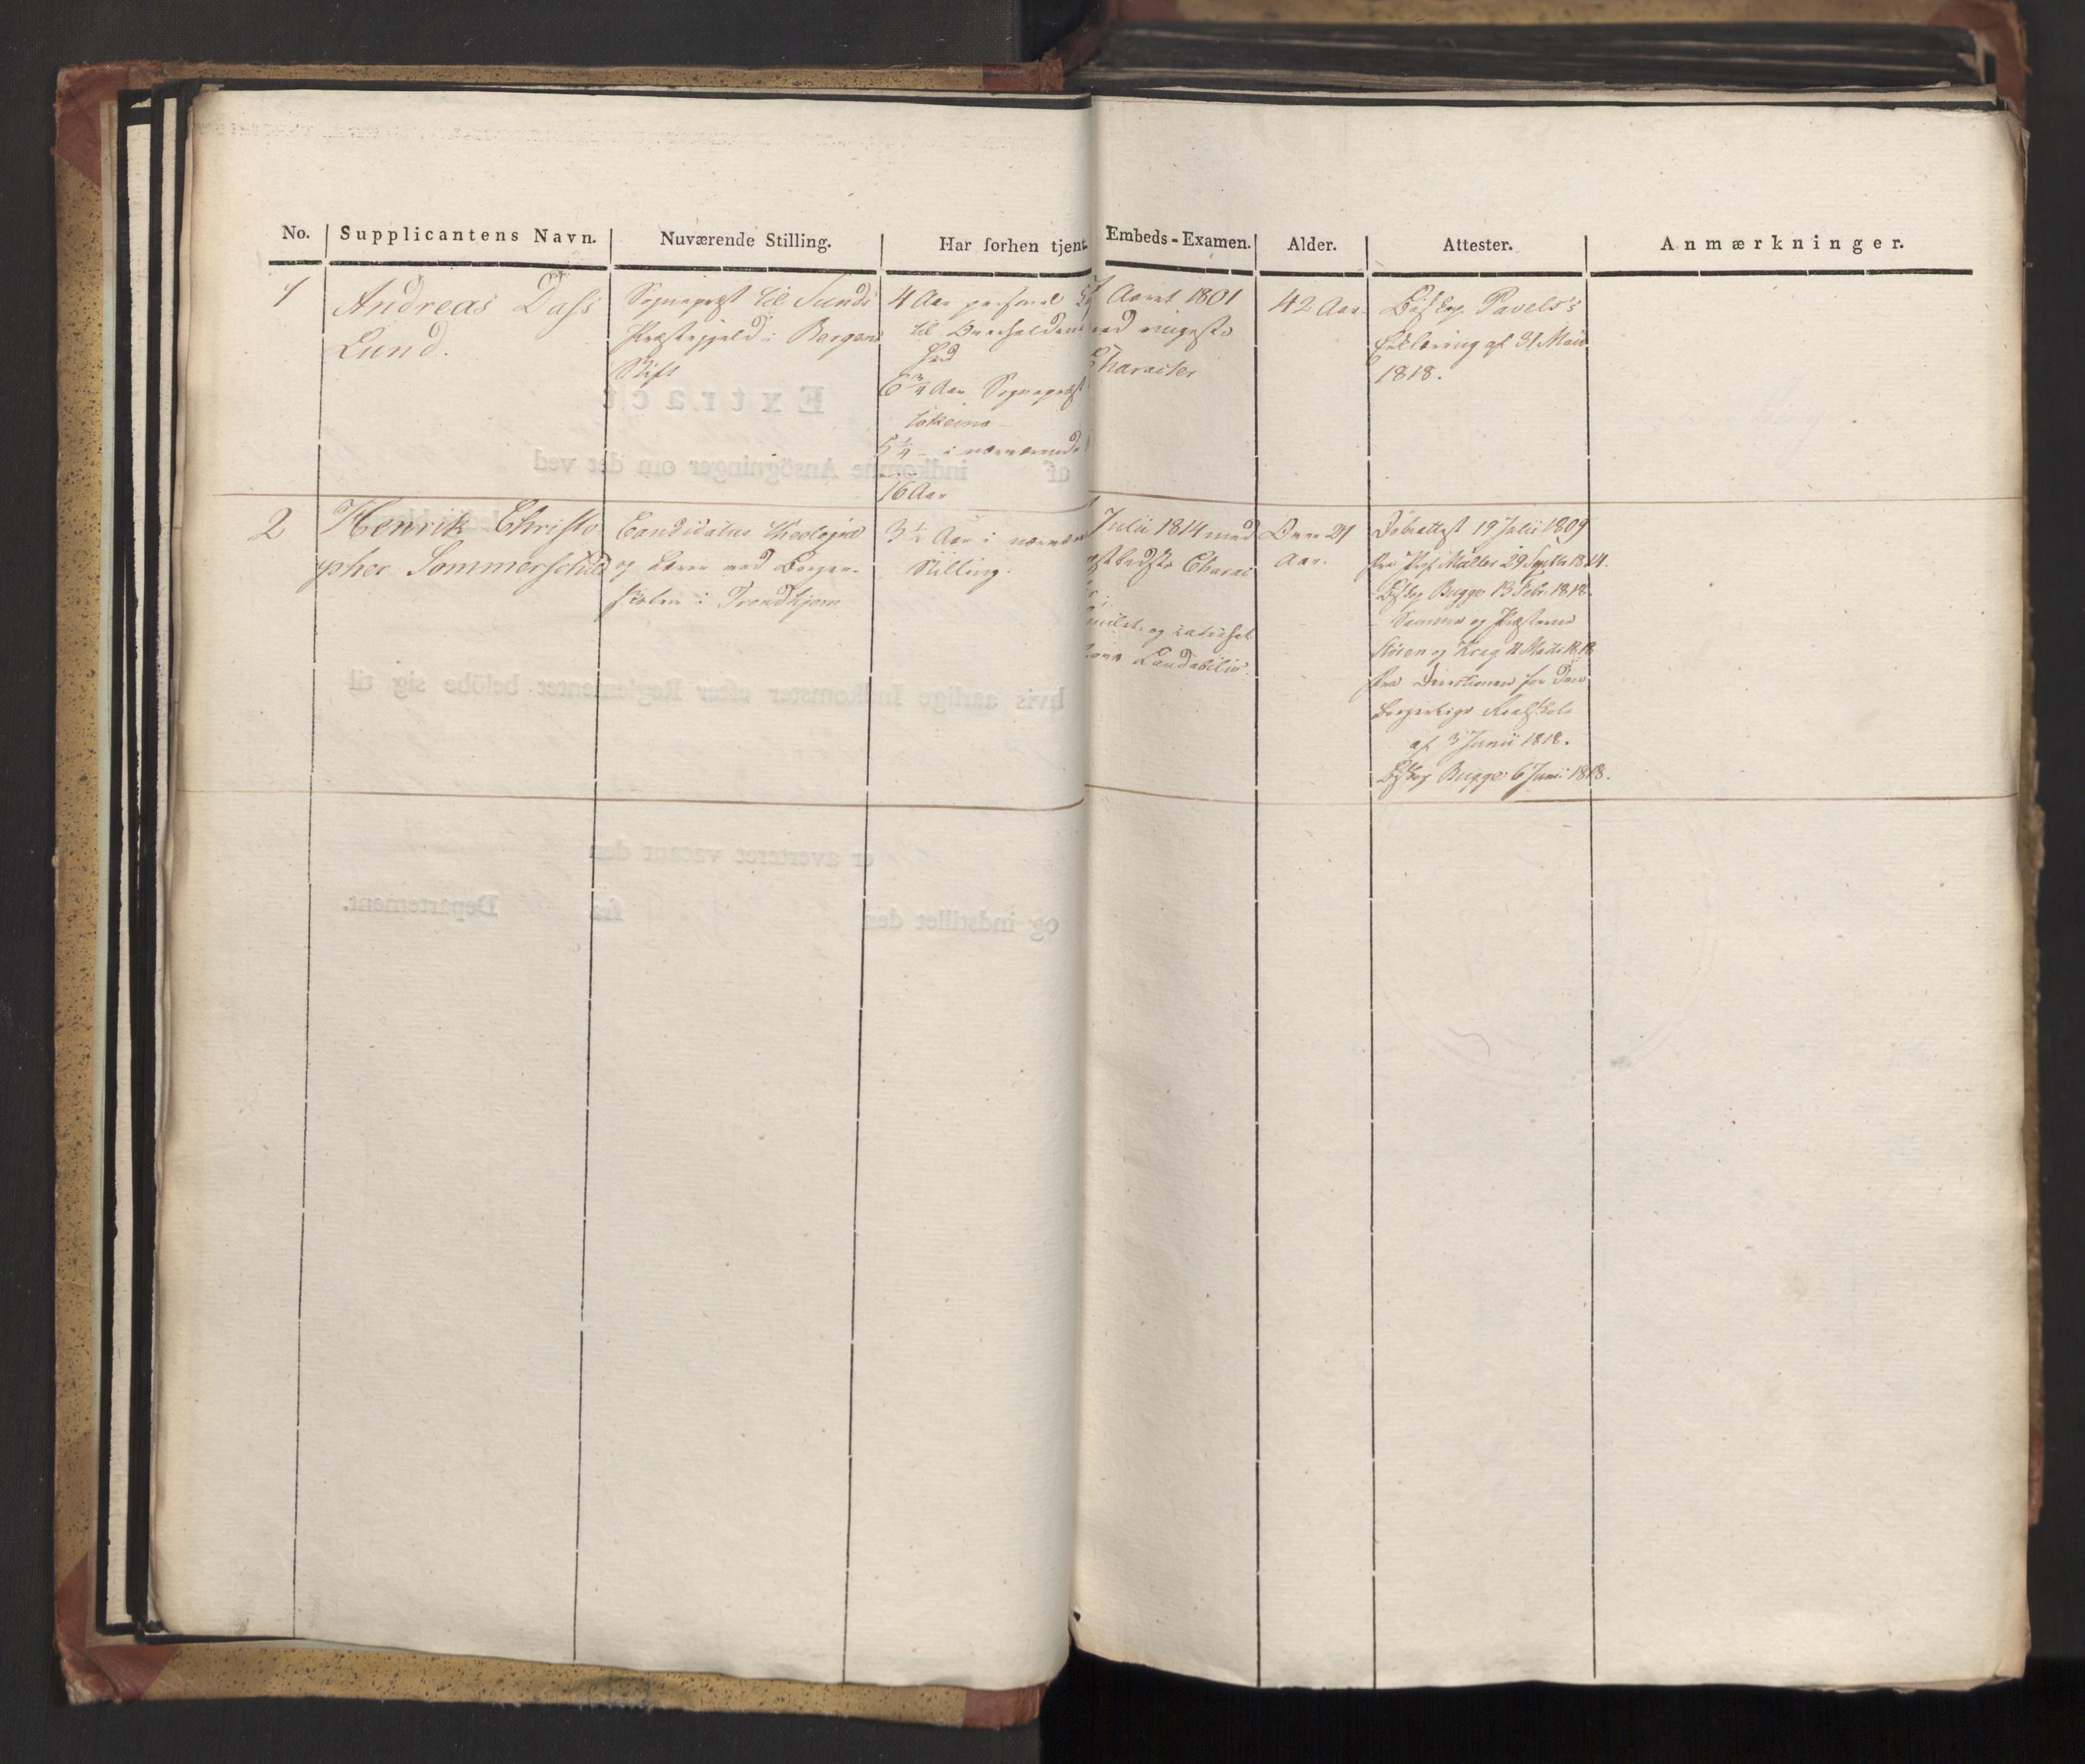 No.
Supplicantens Navn.
Nuværende Stilling.
Har forhen tjent.
Embeds-Examen.
Alder.
Attester.
Anmærkninger.
1
Andreas Dass
Lund.
Sognepræst til Sunds
Præstegjeld i Bergens
Stift
4 Aar personel
til Overhaldens
6 3/4 Aar Sognepræst
5 1/4 - i nærværende
16 Aar
Aaret 1801
med ringeste
Character
42 Aar
Biskop Pavels's
Erklæring af 31 Maii
1818.
2
Henrik Christo
pher Sommerschild
Candidatus theologiæ
og Lærer ved Borger-
skolen i Trondhjem
3 1/2 Aar i nærvær
Stilling.
Julii 1814 med
bedste Charac
og catechet
Laudabilis.
Over 27
Aar.
Døbeattest 19 Julii 1809
fra Prof. Møller 29 Septbr 1814.
Biskop Bugge 13 Febr. 1818.
og Præsterne
og Krag 11 Marts 1818
fra Directionen for den
borgerlige Realskole
af 3 Junii 1818.
Biskop Bugge 6 Junii 1818.
Extract
af indkomne Ansögninger om det ved
hvis aarlige Indkomster efter Reglementet belöbe sig til
er averteret vacant den
og indstillet den fra Departement.